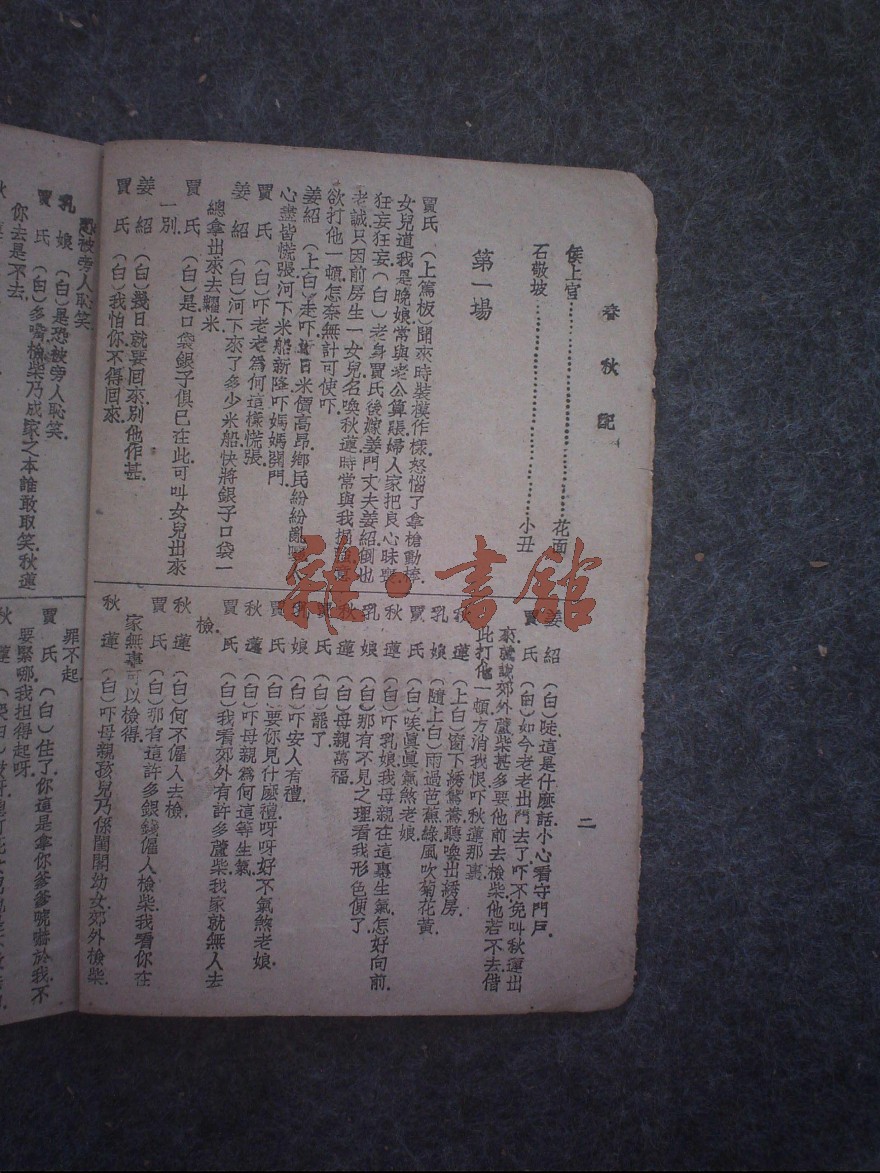 春秋配
二
侯上官 花面
石敬坡 小丑
第一場
賈氏（上篤板）聞來時裝模作樣.怒惱了拿槍動棒.
女兒道我是晚娘.常與老公算賬.婦人家把良心昧喪.
狂妄狂妄.（白）老身賈氏.後嫁姜門.丈夫姜紹.倒也
老誠.只因前房生一女兒.名喚秋蓮.時常與我
欲打他一頓.怎奈無計可使吓.
姜紹（上白）走吓.近日米價高昂.鄉民紛紛亂
心盡皆慌張.河下米船新隆.吓媽媽開門.
賈氏（白）吓老老為何這樣慌張.
姜紹（白）河下來了多少米船.快將銀子口袋一
總拿出來.去糶米.
賈氏（白）是.口袋銀子俱已在此.可叫女兒出來
一別.
姜紹（白）幾日就要回來.別他作甚.
賈氏（白）我怕你不得回來.
姜紹（白）唗.這是什麽話.小心看守門戶.
賈氏（白）如今老老出門去了.吓不免叫秋蓮出
來.就說郊外蘆柴甚多.要他前去檢柴.他若不去.借
此打他一頓.方消我恨.吓秋蓮那裏.
秋蓮（上白）窗下綉鴛鴦.聽喚出綉房.
乳娘（隨上白）雨過芭蕉綠.風吹菊花黃.
賈氏（白）唉眞眞氣煞老娘.
秋蓮（白）吓乳娘.我母親在這裏生氣.怎好向前.
乳娘（白）那有不見之理.看我形色便了.
秋蓮（白）母親萬福.
賈氏（白）罷了.
乳娘（白）吓安人有禮.
賈氏（白）要你見什麽禮呀呀.好不氣煞老娘.
秋蓮（白）吓母親為何這等生氣.
賈氏（白）我看郊外有許多蘆柴.我家就無人去
檢.
秋蓮（白）何不僱人去檢.
賈氏（白）那有這許多銀錢僱人檢柴.我看你在
家無事.可以檢得.
秋蓮（白）吓母親.孩兒乃係閨閣幼女.郊外檢柴.
恐被旁人恥笑.
乳娘（白）是.恐被旁人恥笑.
賈氏（白）多嘴.檢柴乃成家之本.誰敢取笑.秋蓮
你去是不去.
罪不起.
賈氏（白）住了.你這是拿你爹爹唬嚇於我.不
要緊哪.我担得起呀.
雜·書館